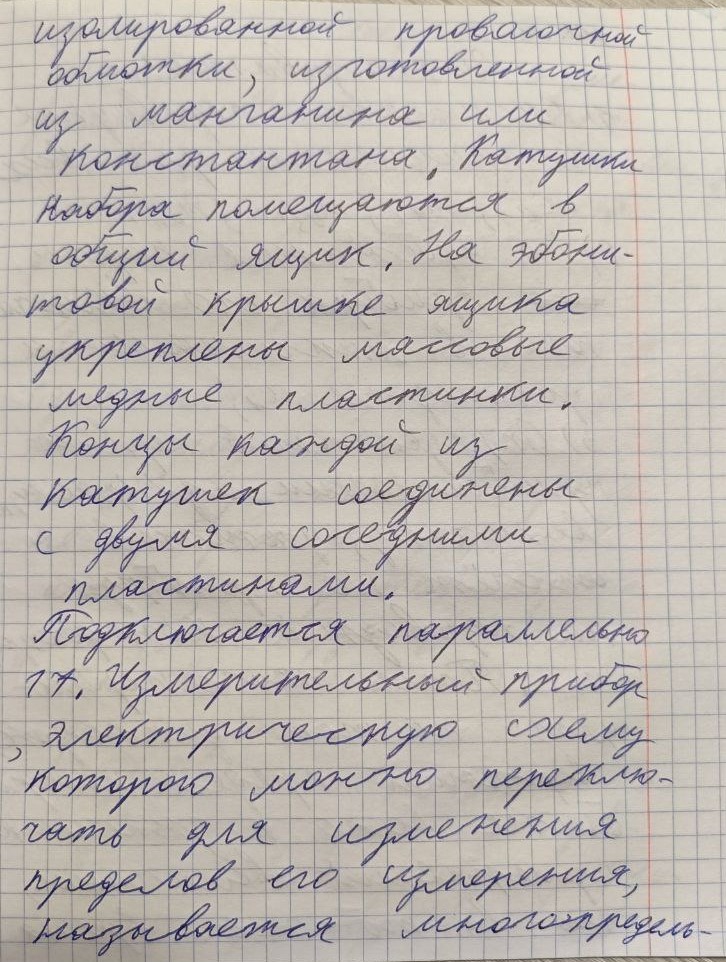 изолированной проволочной
обмотки, изготовленной
из манганина или
константана. Катушки
набора помещаются в
общий ящик. На эбони-
товой крышке ящика
укреплены массовые
медные пластинки.
Концы каждой из
катушек соединены
с двумя соседними
пластинами.
Подключается параллельно
17. Измерительный прибор
, электрическую схему
которого можно переклю-
чать для изменения
пределов его измерения,
называется многопредель-